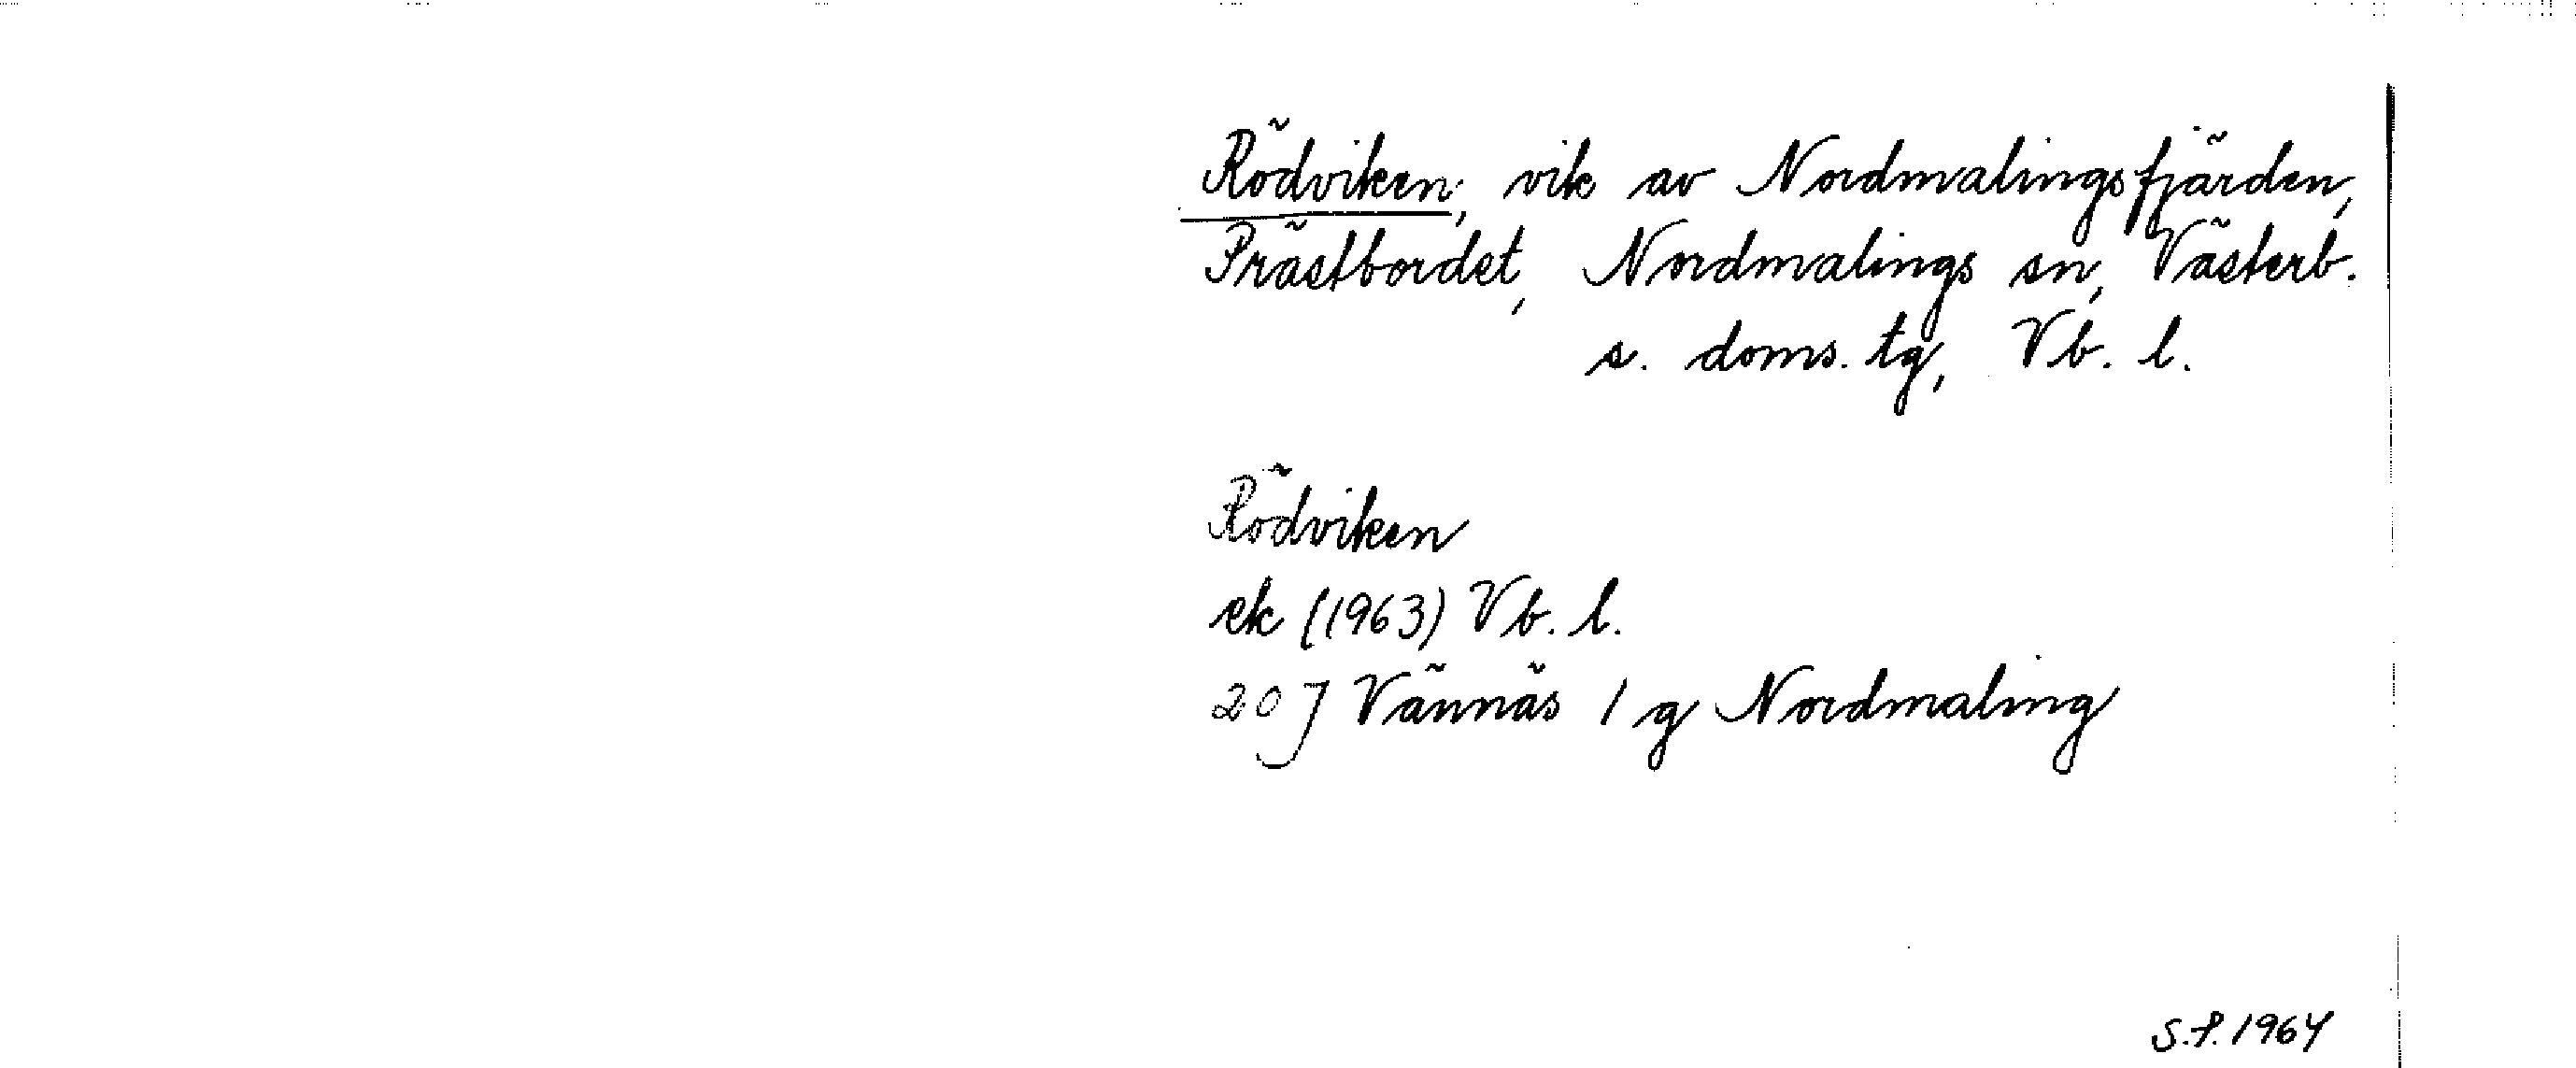 Rödviken, vik av Nordmalingsfjärden,
Prästbordet, Nordmalings sn, Västerb.
s. doms. tg, Vb. l.
Rödviken
ek (1963) Vb. l.
20 J Vännäs 1 g Nordmaling
S.P. 1964